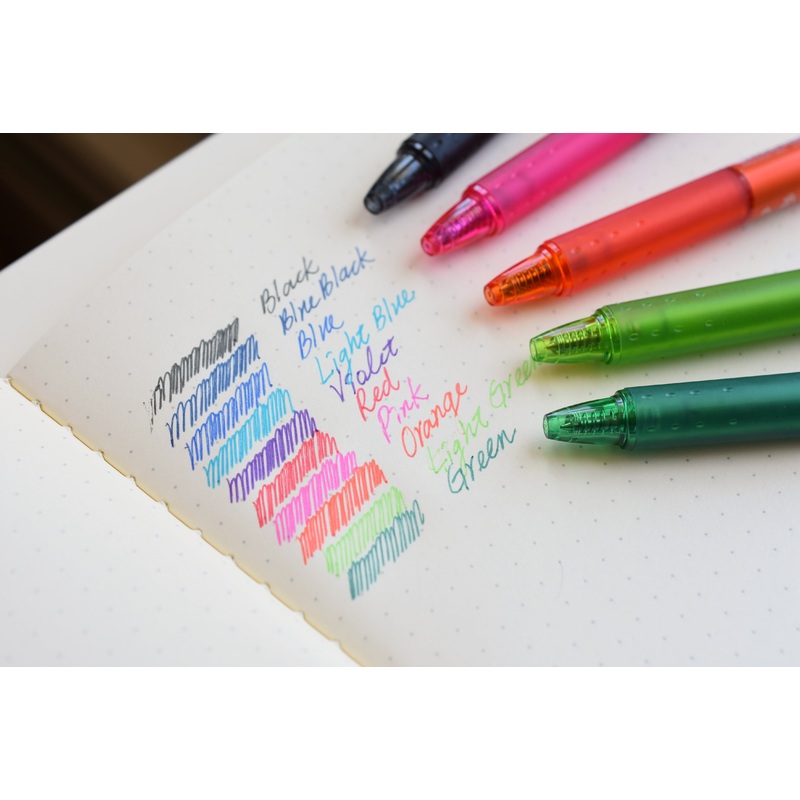 Black
Blue Black
Blue
Light Blue
Violet
Red
Pink
Orange
Light Green
Green